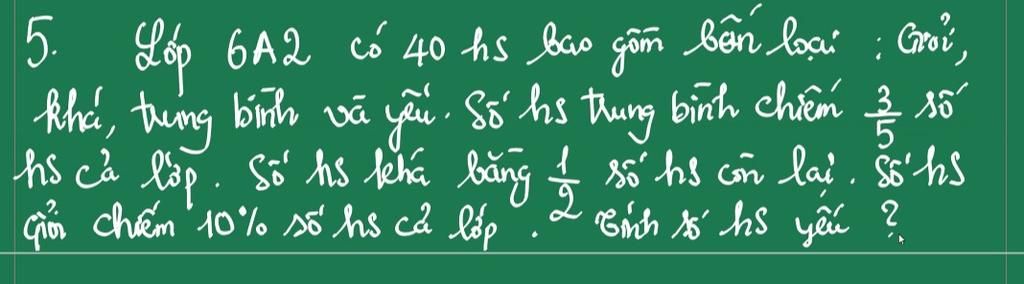 5. Lớp 6A2 có 40 hs bao gồm bốn loại : Giỏi,
khá, trung bình và yếu. Số hs trung bình chiếm 3/5 số
hs cả lớp. Số hs khá bằng 1/2 số hs còn lại. Số hs
giỏi chiếm 10% số hs cả lớp. Tính số hs yếu ?